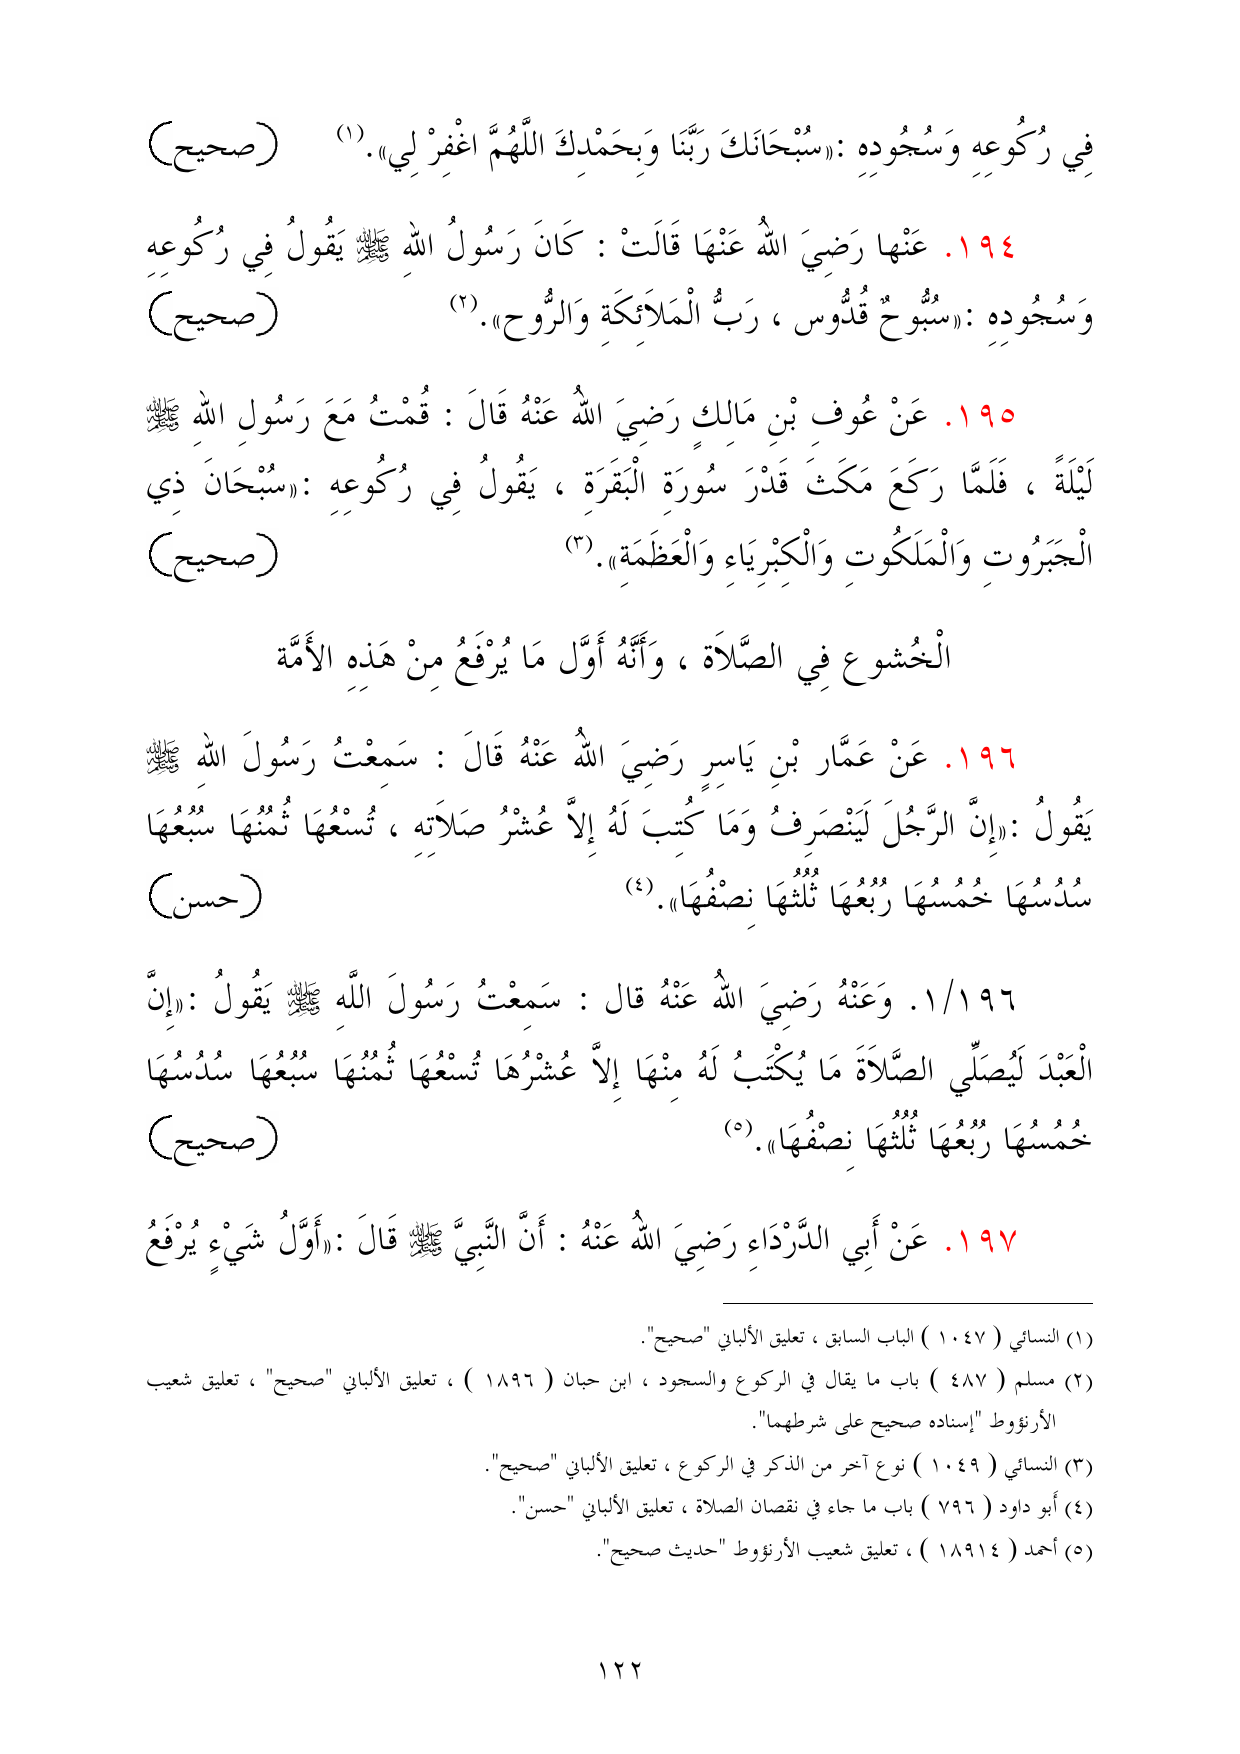 فِي رُكُوعِهِ وَسُجُودِهِ :«سُبْحَانَكَ رَبَّنَا وَبِحَمْدِكَ اللَّهُمَّ اغْفِرْ لِي».(١) (صحيح)
١٩٤. عَنْها رَضِيَ اللهُ عَنْهَا قَالَتْ : كَانَ رَسُولُ اللهِ ﷺ يَقُولُ فِي رُكُوعِهِ
وَسُجُودِهِ :«سُبُّوحٌ قُدُّوس ، رَبُّ الْمَلاَئِكَةِ وَالرُّوحِ».(٢) (صحيح)
١٩٥. عَنْ عُوفِ بْنِ مَالِكٍ رَضِيَ اللهُ عَنْهُ قَالَ : قُمْتُ مَعَ رَسُولِ اللهِ ﷺ
لَيْلَةً ، فَلَمَّا رَكَعَ مَكَثَ قَدْرَ سُورَةِ الْبَقَرَةِ ، يَقُولُ فِي رُكُوعِهِ :«سُبْحَانَ ذِي
الْجَبَرُوتِ وَالْمَلَكُوتِ وَالْكِبْرِيَاءِ وَالْعَظَمَةِ».(٣) (صحيح)
الْخُشوع فِي الصَّلاَة ، وَأَنَّهُ أَوَّل مَا يُرْفَعُ مِنْ هَذِهِ الأَمَّة
١٩٦. عَنْ عَمَّار بْنِ يَاسِرٍ رَضِيَ اللهُ عَنْهُ قَالَ : سَمِعْتُ رَسُولَ اللهِ ﷺ
يَقُولُ :«إِنَّ الرَّجُلَ لَيَنْصَرِفُ وَمَا كُتِبَ لَهُ إِلاَّ عُشْرُ صَلاَتِهِ ، تُسْعُهَا ثُمُنُهَا سُبُعُهَا
سُدُسُهَا خُمُسُهَا رُبُعُهَا ثُلُثُهَا نِصْفُهَا».(٤) (حسن)
١/١٩٦. وَعَنْهُ رَضِيَ اللهُ عَنْهُ قال : سَمِعْتُ رَسُولَ اللَّهِ ﷺ يَقُولُ :«إِنَّ
الْعَبْدَ لَيُصَلِّي الصَّلاَةَ مَا يُكْتَبُ لَهُ مِنْهَا إِلاَّ عُشْرُهَا تُسْعُهَا ثُمُنُهَا سُبُعُهَا سُدُسُهَا
خُمُسُهَا رُبُعُهَا ثُلُثُهَا نِصْفُهَا».(٥) (صحيح)
١٩٧. عَنْ أَبِي الدَّرْدَاءِ رَضِيَ اللهُ عَنْهُ : أَنَّ النَّبِيَّ ﷺ قَالَ :«أَوَّلُ شَيْءٍ يُرْفَعُ
(١) النسائي ( ١٠٤٧ ) الباب السابق ، تعليق الألباني "صحيح".
(٢) مسلم ( ٤٨٧ ) باب ما يقال في الركوع والسجود ، ابن حبان ( ١٨٩٦ ) ، تعليق الألباني "صحيح" ، تعليق شعيب
الأرنؤوط "إسناده صحيح على شرطهما".
(٣) النسائي ( ١٠٤٩ ) نوع آخر من الذكر في الركوع ، تعليق الألباني "صحيح".
(٤) أبو داود ( ٧٩٦ ) باب ما جاء في نقصان الصلاة ، تعليق الألباني "حسن".
(٥) أحمد ( ١٨٩١٤ ) ، تعليق شعيب الأرنؤوط "حديث صحيح".
١٢٢